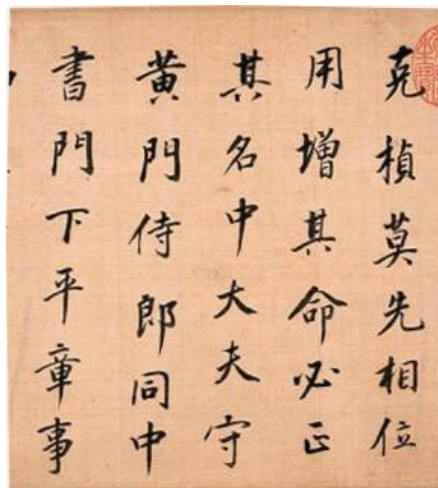 克楨莫先相位
用增其命必正
其名中大夫守
黄門侍郎同中
書門下平章事